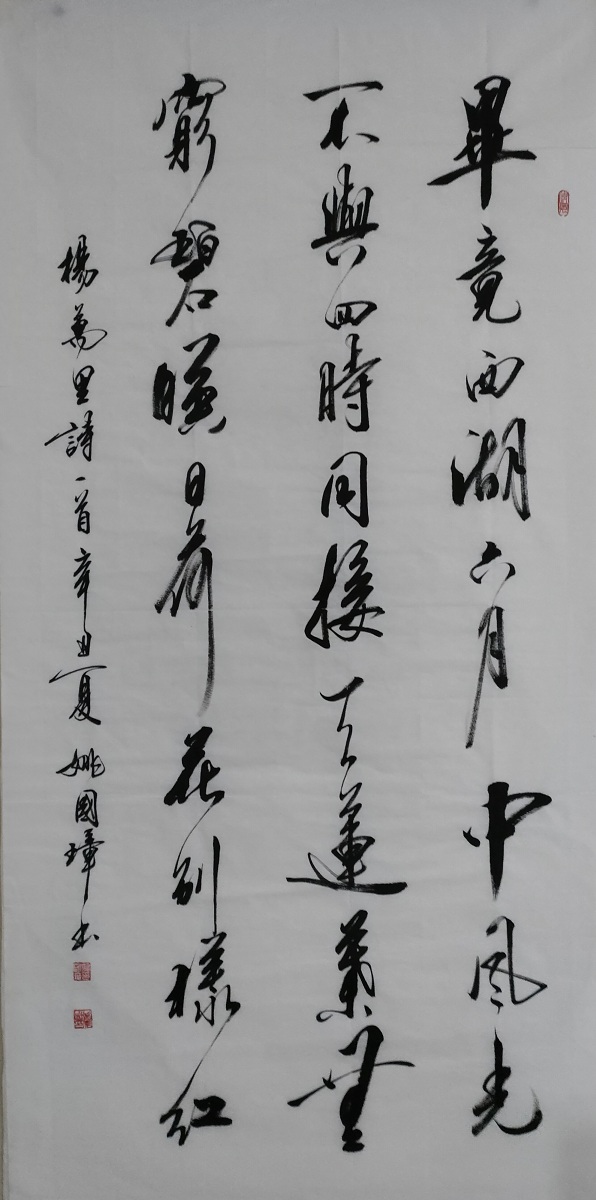 畢竟西湖六月中風光
不與四時同接天蓮葉無
窮碧暎日荷花別樣紅
楊萬里詩一首辛丑夏姚國璋书